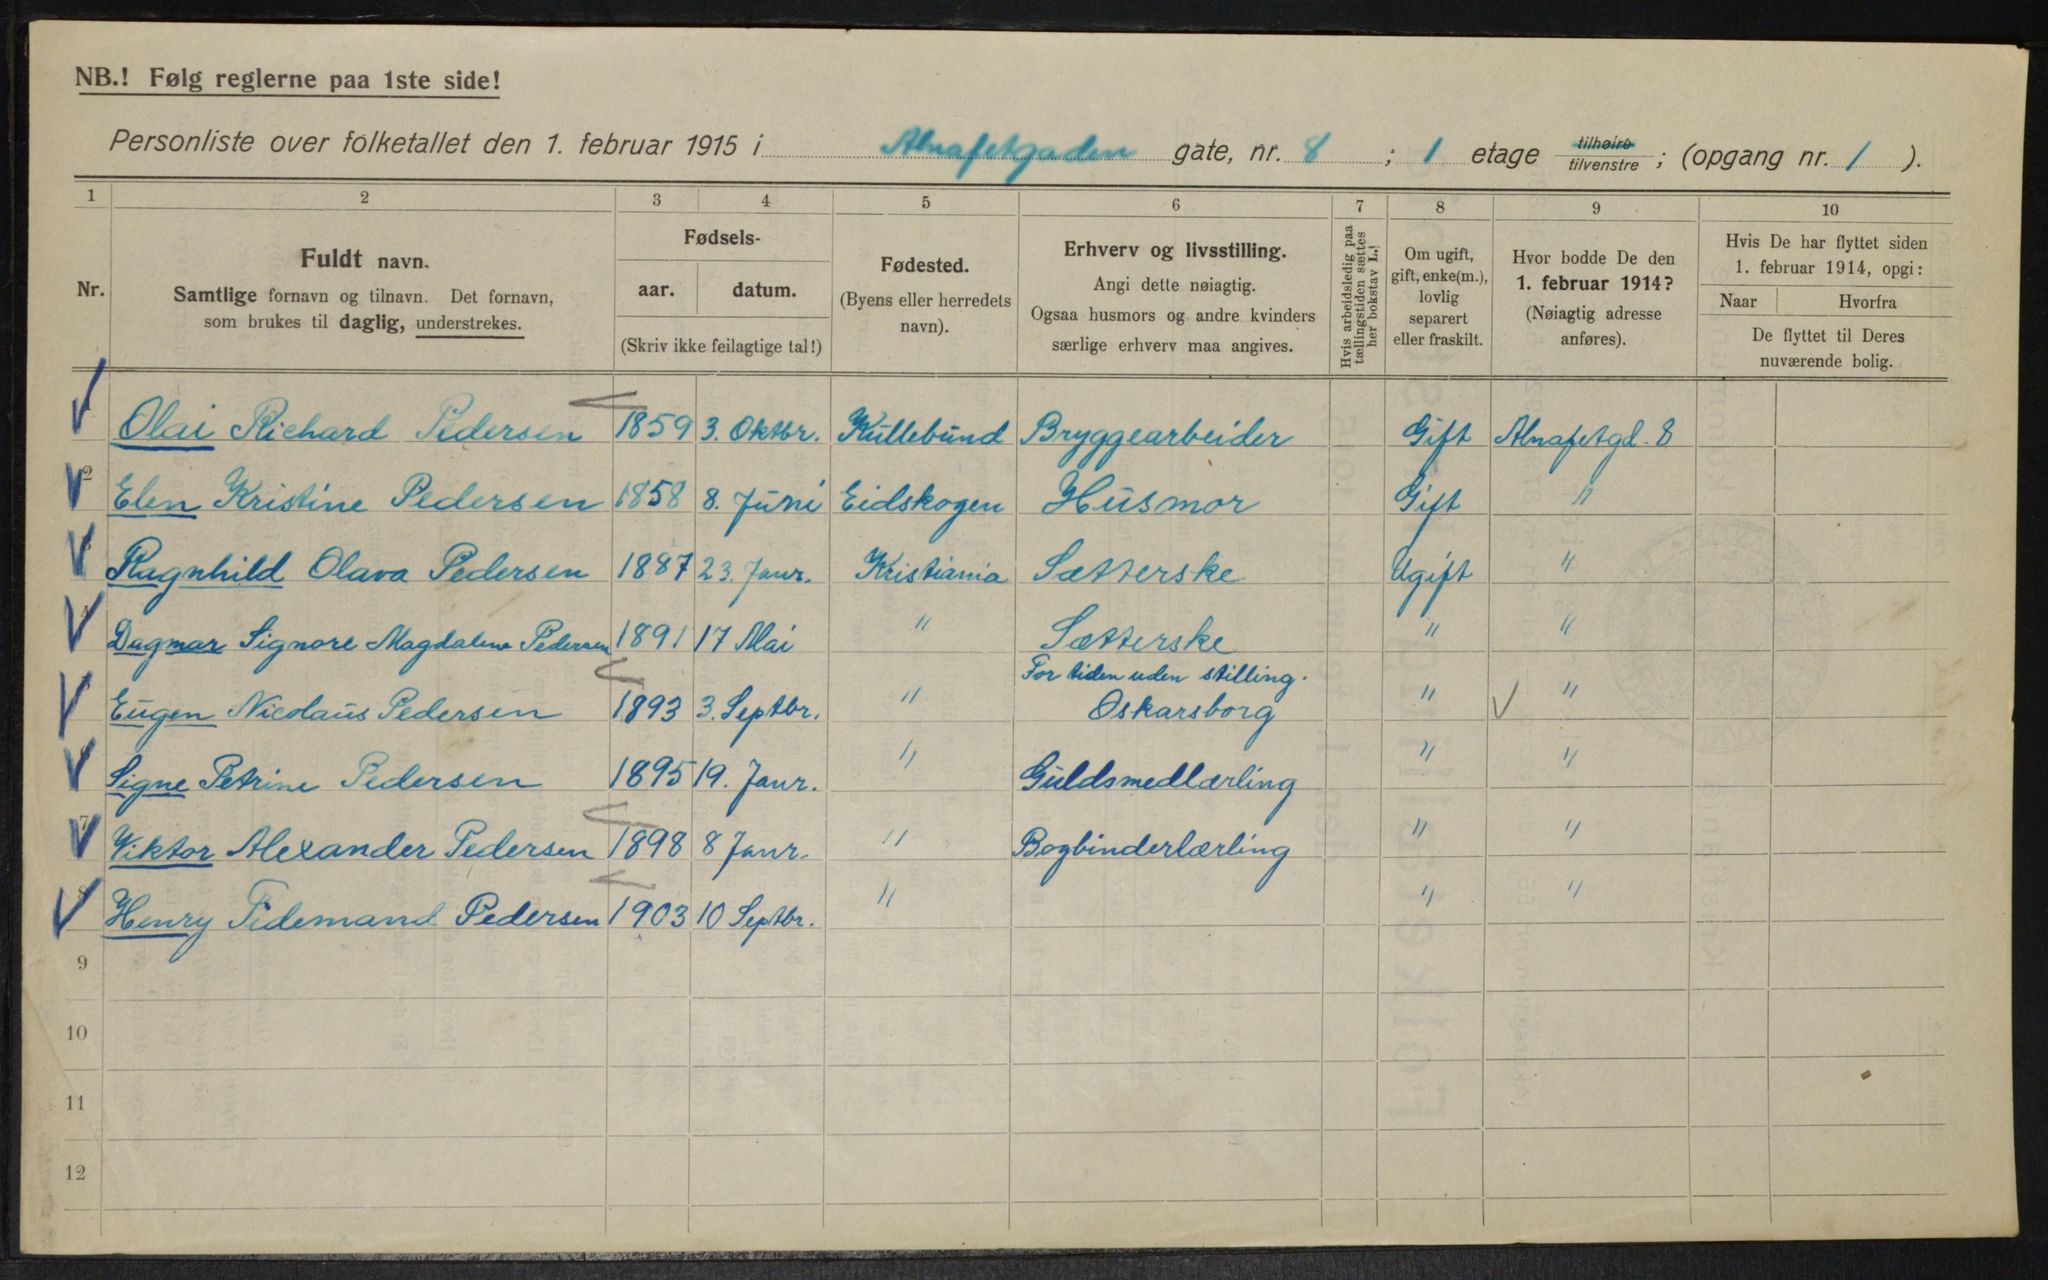 NB.! Følg reglerne paa 1ste side!
Personliste over folketallet den 1. februar 1915 i Alnafetgaden gate, nr. 8 ; 1 etage tilhøire tilvenstre ; (opgang nr. 1 ).
1 2 3 4 5 6 7 8 9 10
Nr.
Fuldt navn.
Samtlige fornavn og tilnavn. Det fornavn,
som brukes til daglig, understrekes.
Fødsels-
aar. datum.
(Skriv ikke feilagtige tal!)
Fødested.
(Byens eller herredets
navn).
Erhverv og livsstilling.
Angi dette nøiagtig.
Ogsaa husmors og andre kvinders
særlige erhverv maa angives.
Hvis arbeidsledig paa
tællingstiden sættes
her bokstav L.!
Om ugift,
gift, enke(m.),
lovlig
separert
eller fraskilt.
Hvor bodde De den
1. februar 1914?
(Nøiagtig adresse
anføres).
Hvis De har flyttet siden
1. februar 1914, opgi:
Naar Hvorfra
De flyttet til Deres
nuværende bolig.
Olai Richard Pedersen 1859 3. Oktbr. Kullebund Bryggearbeider Gift Alnafetgd. 8
2 Elen Kristine Pedersen 1858 8. Juni Eidskogen Husmor Gift "
Ragnhild Olava Pedersen 1887 23. Janr. Kristiania Sætterske Ugift "
4 Dagmar Signore Magdalene Pedersen 1891 17 Mai " Sætterske " "
For tiden uden stilling.
Eugen Nicolaus Pedersen 1893 3. Septbr. " Oskarsborg " "
Signe Petrine Pedersen 1895 19. Janr. " Guldsmedlærling " "
7 Viktor Alexander Pedersen 1898 8 Janr. " Bogbinderlærling " "
8 Henry Tidemand Pedersen 1903 10 Septbr. " " "
9
10
11
12